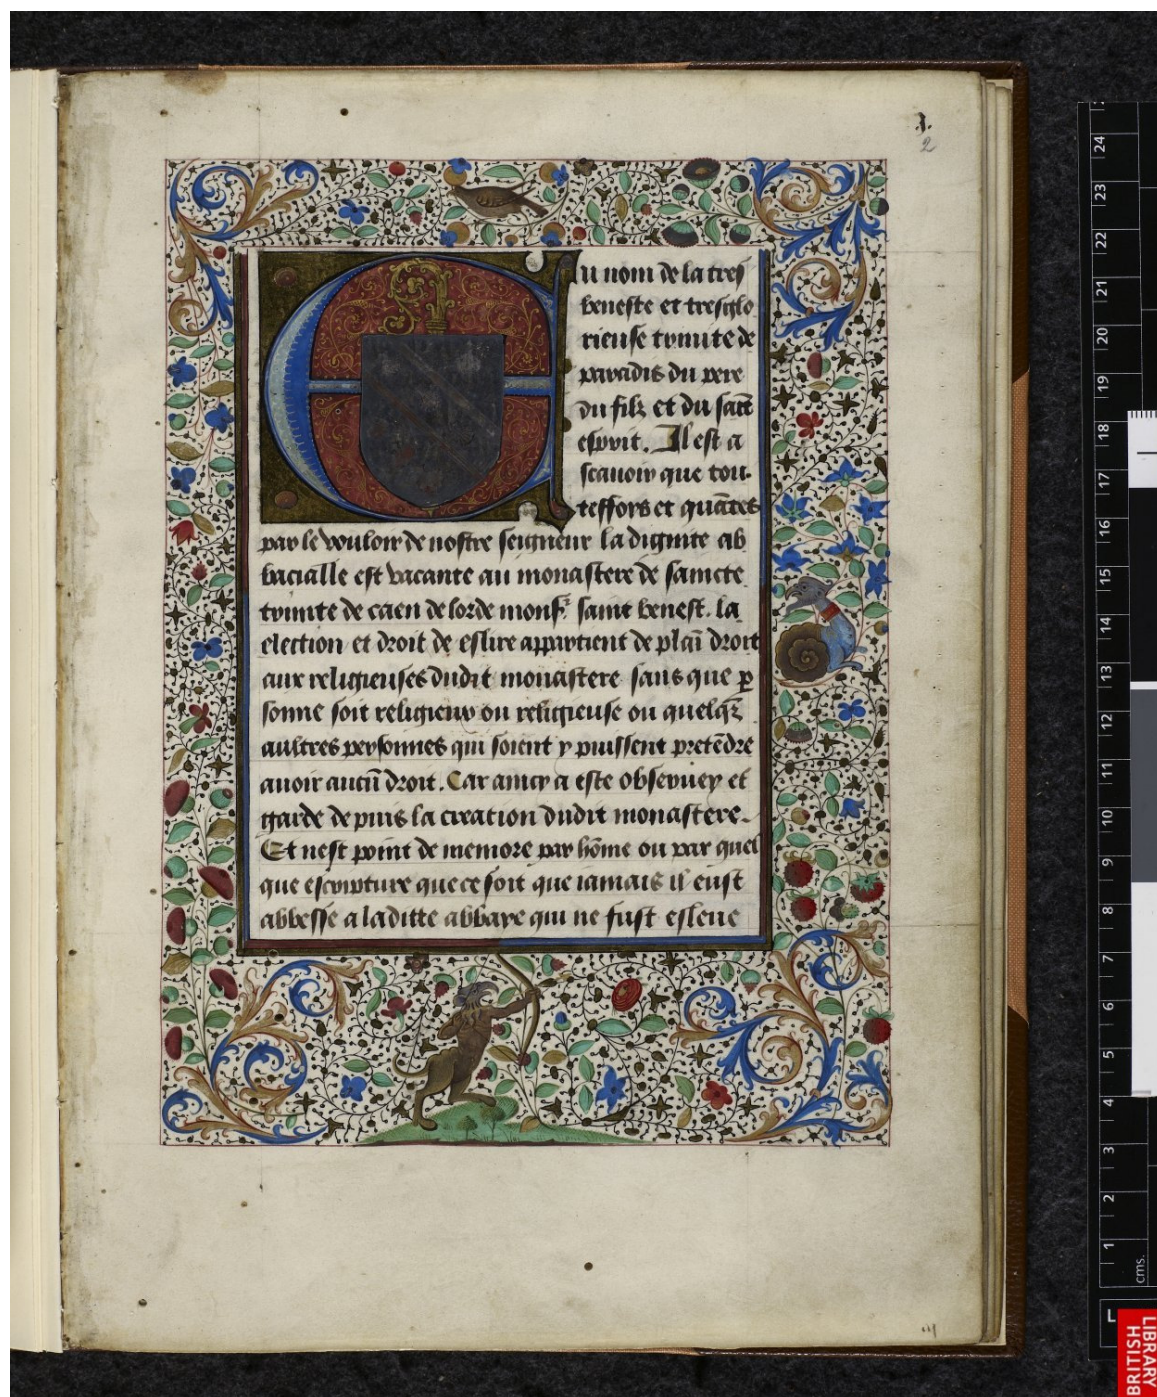 1.
2
Au nom de la tres
beneste et tresglo
rieuse trinite de
paradis du pere
du filz et du sait̄
esprit. Il est a
scauoir que tou
teffoys et quātes
par le vouloir de nostre seigneur la dignite ab
bacialle est vacante au monastere de saincte
trinite de caen de lorde monsr̄ saint benest. la
election et droit de eslire appartient de plaī droit
aux religieuses dudit monastere sans que ꝑ
sonne soit religieux ou religieuse ou quelqz̄
aultres personnes qui soient y puissent pretēdre
auoir aucū droit. Car aincy a este obseruey et
garde depuis la creation dudit monastere.
Et nest point de memore par hōme ou par quel
que escripture que ce soit que iamais il eust
abbesse a laditte abbaye qui ne fust esleue
24
23
22
21
20
19
18
17
16
15
14
13
12
11
10
9
8
7
6
5
4
3
2
1
cms.
BRITISH
LIBRARY